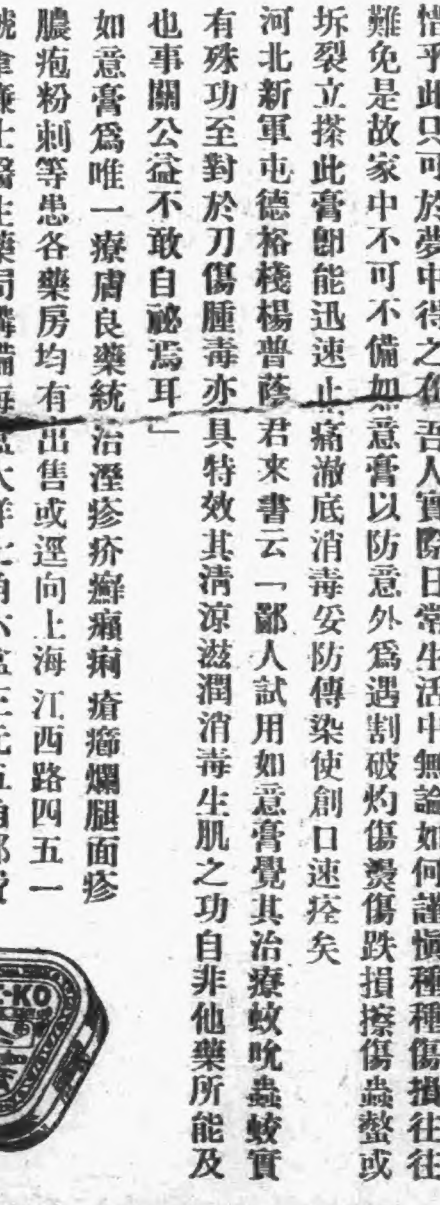 惜乎此只可於夢中得之在吾人實際日常生活中無論如何謹愼種種傷損往往
難免是故家中不可不備如意膏以防意外爲遇割破灼傷燙傷跌損擦傷蟲螫或
坼裂立搽此膏卽能迅速止痛澈底消毒妥防傳染使創口速痊矣
河北新軍屯德裕棧楊普蔭君來書云「鄙人試用如意膏覺其治療蚊吮蟲蛟實
有殊功至對於刀傷腫毒亦具特效其淸凉滋潤消毒生肌之功自非他藥所能及
也事關公益不敢自祕焉耳」
如意膏爲唯一療膚良藥統治溼疹疥癬癩痢瘡癤爛腿面疹
膿疱粉刺等患各藥房均有出售或逕向上海江西路四五一
號韋廉士醫生藥局購備每盒大洋七角六盒三元五角郵費
KO